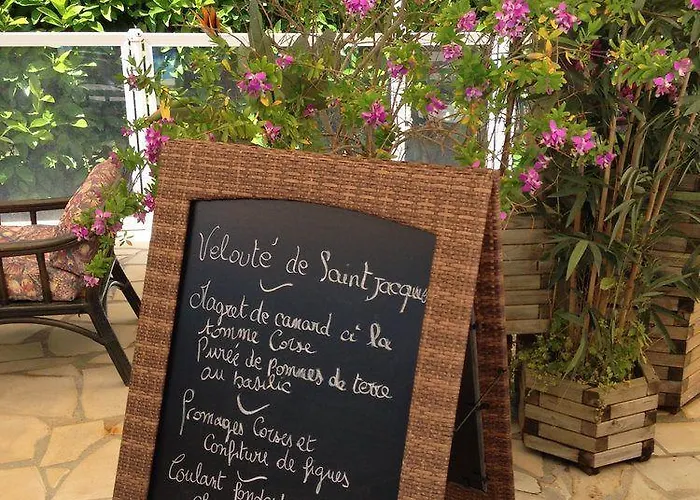 Velouté de Saint jacques
Magret de canard à la
tomme Corse
Purée de Pommes de terre
au basilic
Fromages Corses et
Confiture de figues
Coulant fondant